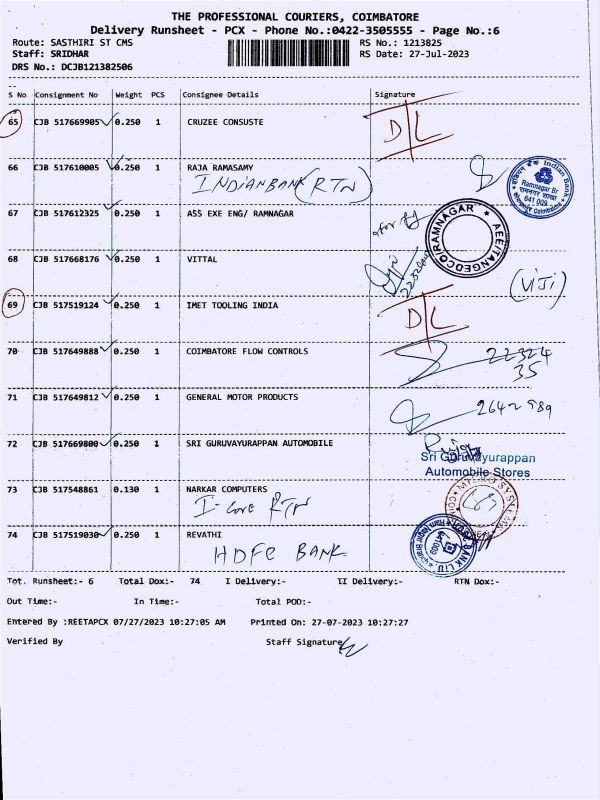 THE PROFESSIONAL COURIERS, COIMBATORE
Delivery Runsheet - PCX - Phone No.:0422-3505555 - Page No.:6
Route: SASTHIRI ST CMS RS No.: 1213825
Staff: SRIDHAR RS Date: 27-Jul-2023
DRS No.: DCJB121382506
S No Consignment No Weight PCS Consignee Details Signature
65 CJB 517669905 0.250 1 CRUZEE CONSUSTE D/L
66 CJB 517610005 0.250 1 RAJA RAMASAMY
INDIANBANK (RTN)
Indian Bank
Ramnagar Br
641 009
Coimbatore
67 CJB 517612325 0.250 1 ASS EXE ENG/ RAMNAGAR
AEE/TANGEDCO/RAMNAGAR
68 CJB 517668176 0.250 1 VITTAL
(VIJI)
69 CJB 517519124 0.250 1 IMET TOOLING INDIA D/L
70 CJB 517649888 0.250 1 COIMBATORE FLOW CONTROLS
22324
35
71 CJB 517649812 0.250 1 GENERAL MOTOR PRODUCTS
2642989
72 CJB 517669800 0.250 1 SRI GURUVAYURAPPAN AUTOMOBILE
Sri Guruvayurappan
Automobile Stores
73 CJB 517548861 0.130 1 NARKAR COMPUTERS
I-Core RTN
74 CJB 517519030 0.250 1 REVATHI
HDFC BANK
Tot. Runsheet:- 6 Total Dox:- 74 I Delivery:- II Delivery:- RTN Dox:-
Out Time:- In Time:- Total POD:-
Entered By :REETAPCX 07/27/2023 10:27:05 AM Printed On: 27-07-2023 10:27:27
Verified By Staff Signature